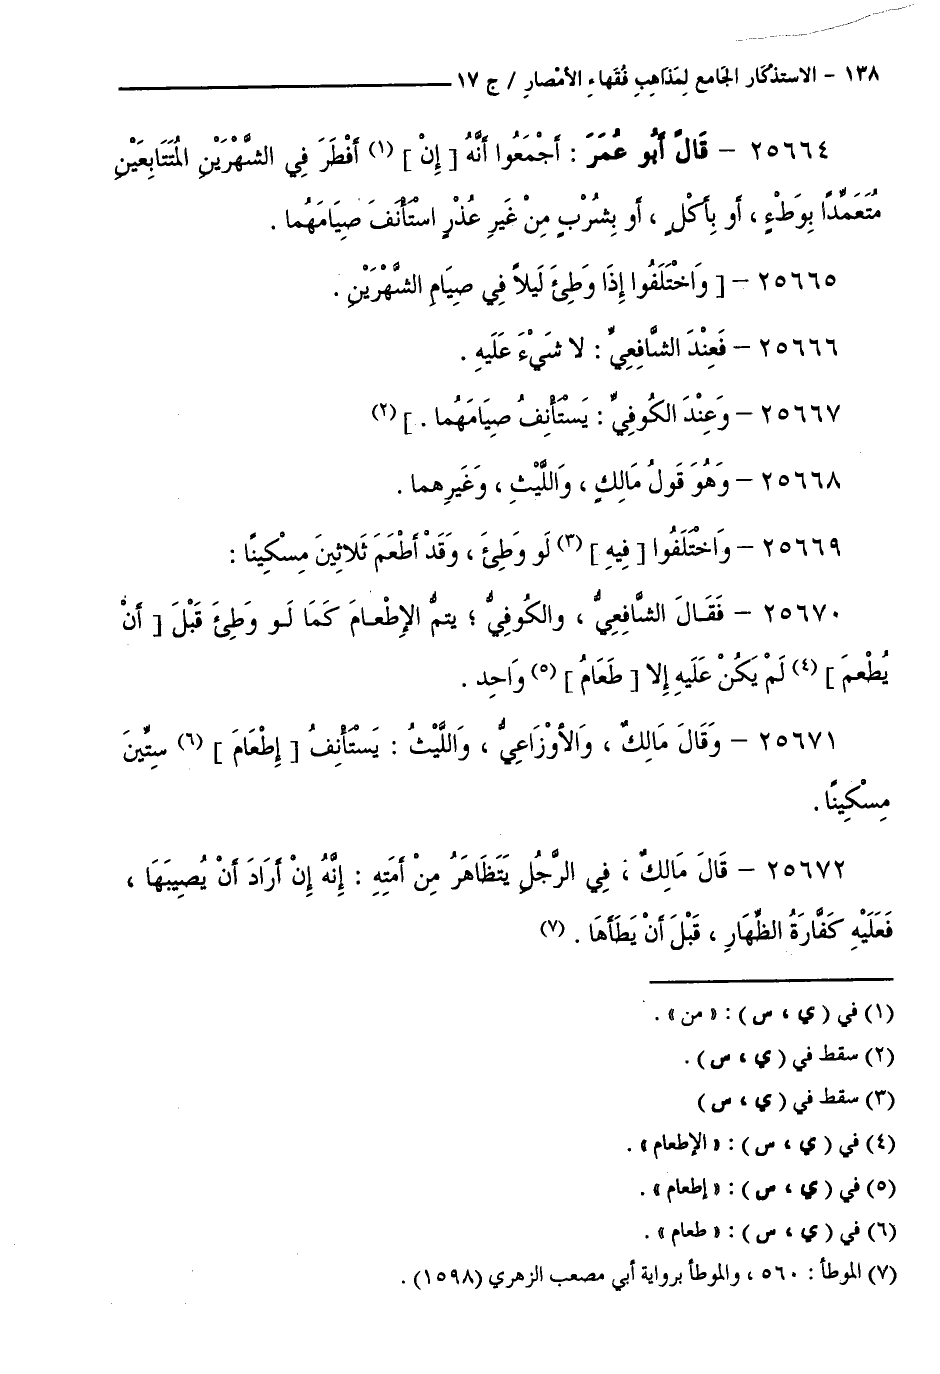 ١٣٨ - الاستذكار الجامع لِمَذَاهِبِ فُقَهاءِ الأمْصارِ / ج ١٧
٢٥٦٦٤ - قَالَ أَبُو عُمَرَ : أجْمَعُوا أنَّهُ [ إنْ ] (١) أفْطَرَ فِي الشَّهْرَيْنِ المُتَتَابِعَيْنِ
مُتَعَمِّدًا بِوَطْءٍ ، أو بِأكْلٍ ، أو بِشُرْبٍ مِنْ غَيرِ عُذْرٍ اسْتَأْنَفَ صِيَامَهُما .
٢٥٦٦٥ - [ وَاخْتَلَفُوا إِذَا وَطِئَ لَيلاً فِي صِيَامِ الشَّهْرَيْنِ .
٢٥٦٦٦ - فَعِنْدَ الشَّافِعِيِّ : لا شَيْءَ عَلَيهِ .
٢٥٦٦٧ - وَعِنْدَ الكُوفِيِّ : يَسْتَأْنِفُ صِيَامَهُما . ] (٢)
٢٥٦٦٨ - وَهُوَ قَولُ مَالِكٍ ، وَاللَّيْثِ ، وَغَيرِهما .
٢٥٦٦٩ - وَاخْتَلَفُوا [ فِيهِ ] (٣) لَو وَطِئَ ، وَقَدْ أطْعَمَ ثَلاثِينَ مِسْكِينًا :
٢٥٦٧٠ - فَقَـالَ الشَّافِعِيُّ ، والكُوفِيُّ ؛ يتمُّ الإِطْعَـامَ كَمَا لَـو وَطِئَ قَبْلَ [ أنْ
يُطْعمَ ] (٤) لَمْ يَكُنْ عَلَيهِ إِلا [ طَعَامُ ] (٥) وَاحِد .
٢٥٦٧١ - وَقَالَ مَالِكٌ ، وَالأوْزَاعِيُّ ، وَاللَّيْثُ : يَسْتَأْنِفُ [ إِطْعَامَ ] (٦) ستِّينَ
مِسْكِينًا .
٢٥٦٧٢ - قَالَ مَالِكٌ ، فِي الرَّجُلِ يَتَظَاهَرُ مِنْ أمَتِهِ : إِنَّهُ إِنْ أرَادَ أنْ يُصِيبَهَا ،
فَعَلَيْهِ كَفَّارَةُ الظِّهَارِ ، قَبْلَ أنْ يَطَأهَا . (٧)
(١) في ( ي ، س ) : « من » .
(٢) سقط في ( ي ، س ) .
(٣) سقط في ( ي ، س )
(٤) في ( ي ، س ) : « الإطعام » .
(٥) في ( ي ، س ) : « إطعام » .
(٦) في ( ي ، س ) : « طعام » .
(٧) الموطأ : ٥٦٠ ، والموطأ برواية أبي مصعب الزهري (١٥٩٨) .